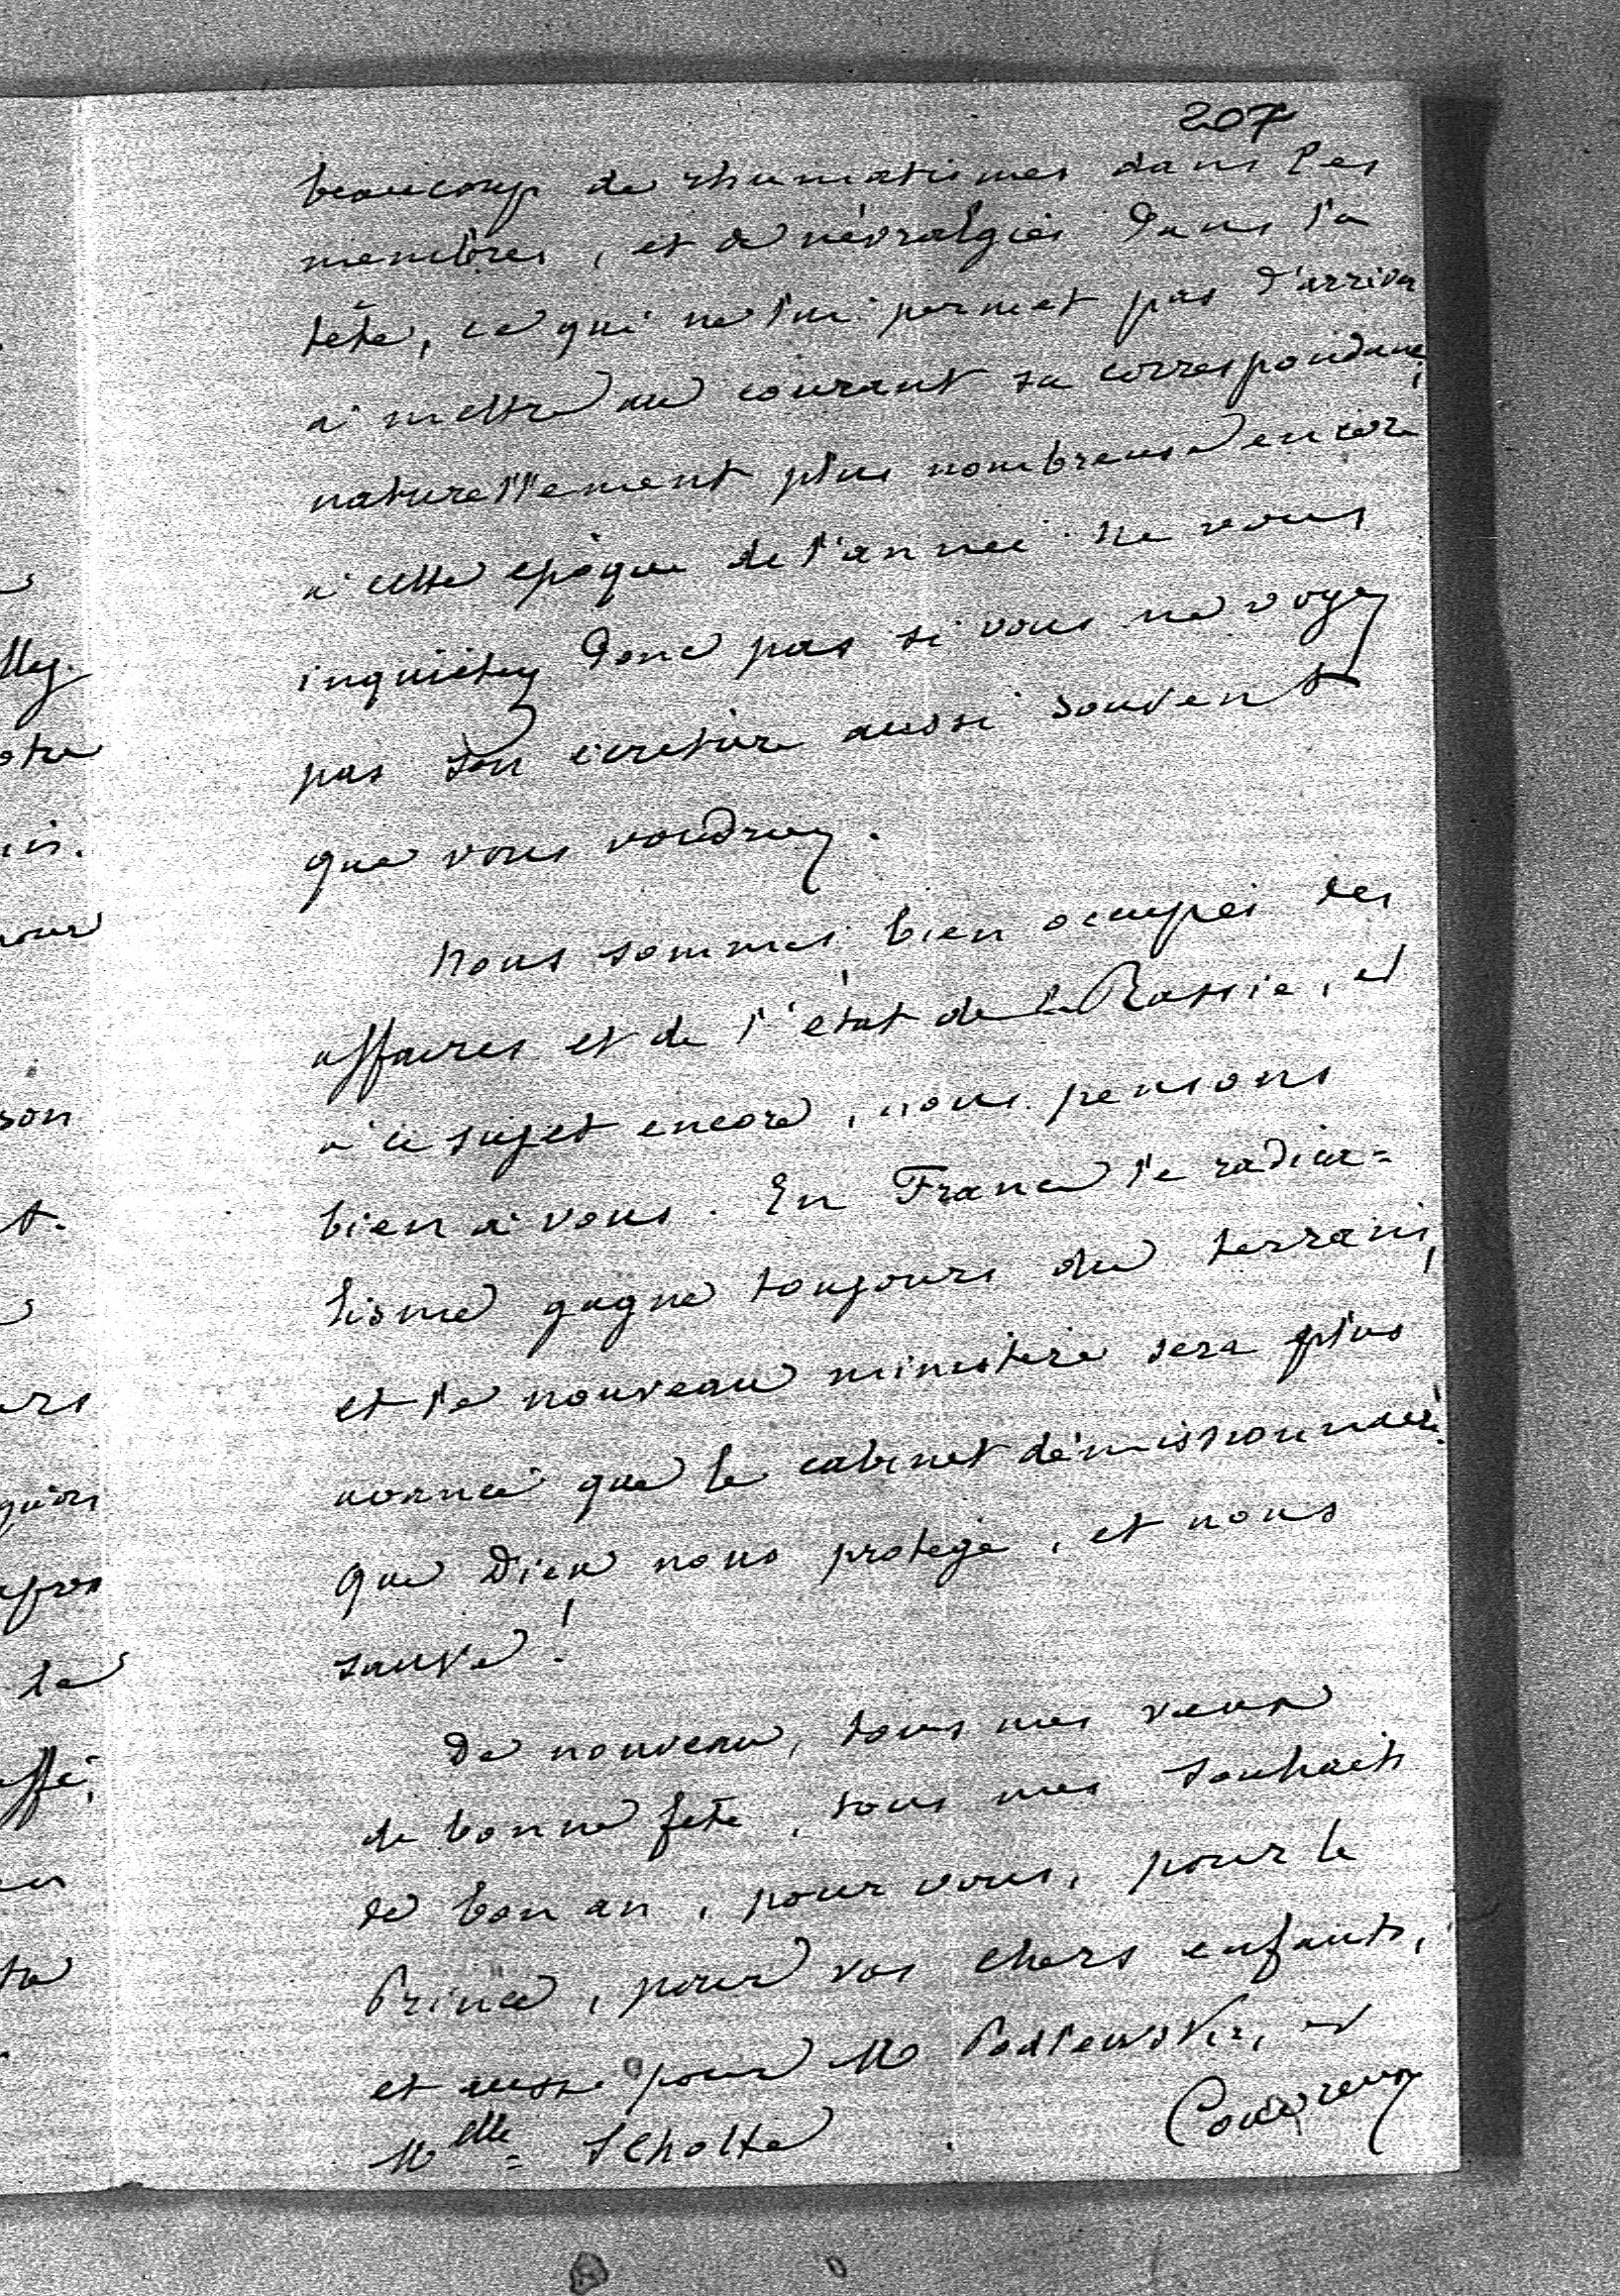 207
beaucoup de rhumatismes dans les
membres, et de névralgies dans la
tête, ce qui ne lui permet pas d'arriver
à mettre au courant sa correspondance,
naturellement plus nombreuse encore
à cette époque de l'année. Ne vous
inquiétez donc pas si vous ne voyez
pas son écriture aussi souvent
que vous voudriez.
Nous sommes bien occupés des
affaires et de l'état de la Russie, et
à ce sujet encore, nous pensons
bien à vous. En France le radica=
lisme gagne toujours du terrain,
et le nouveau ministère sera plus
avancé que le cabinet démissionnaire.
Que Dieu nous protège, et nous
sauve!
De nouveau, tous mes vœux
de bonne fête, tous mes souhaits
de bon an, pour vous, pour le
Prince, pour vos chers enfants,
et aussi pour M. Podlewski, et
Melle Scholte.